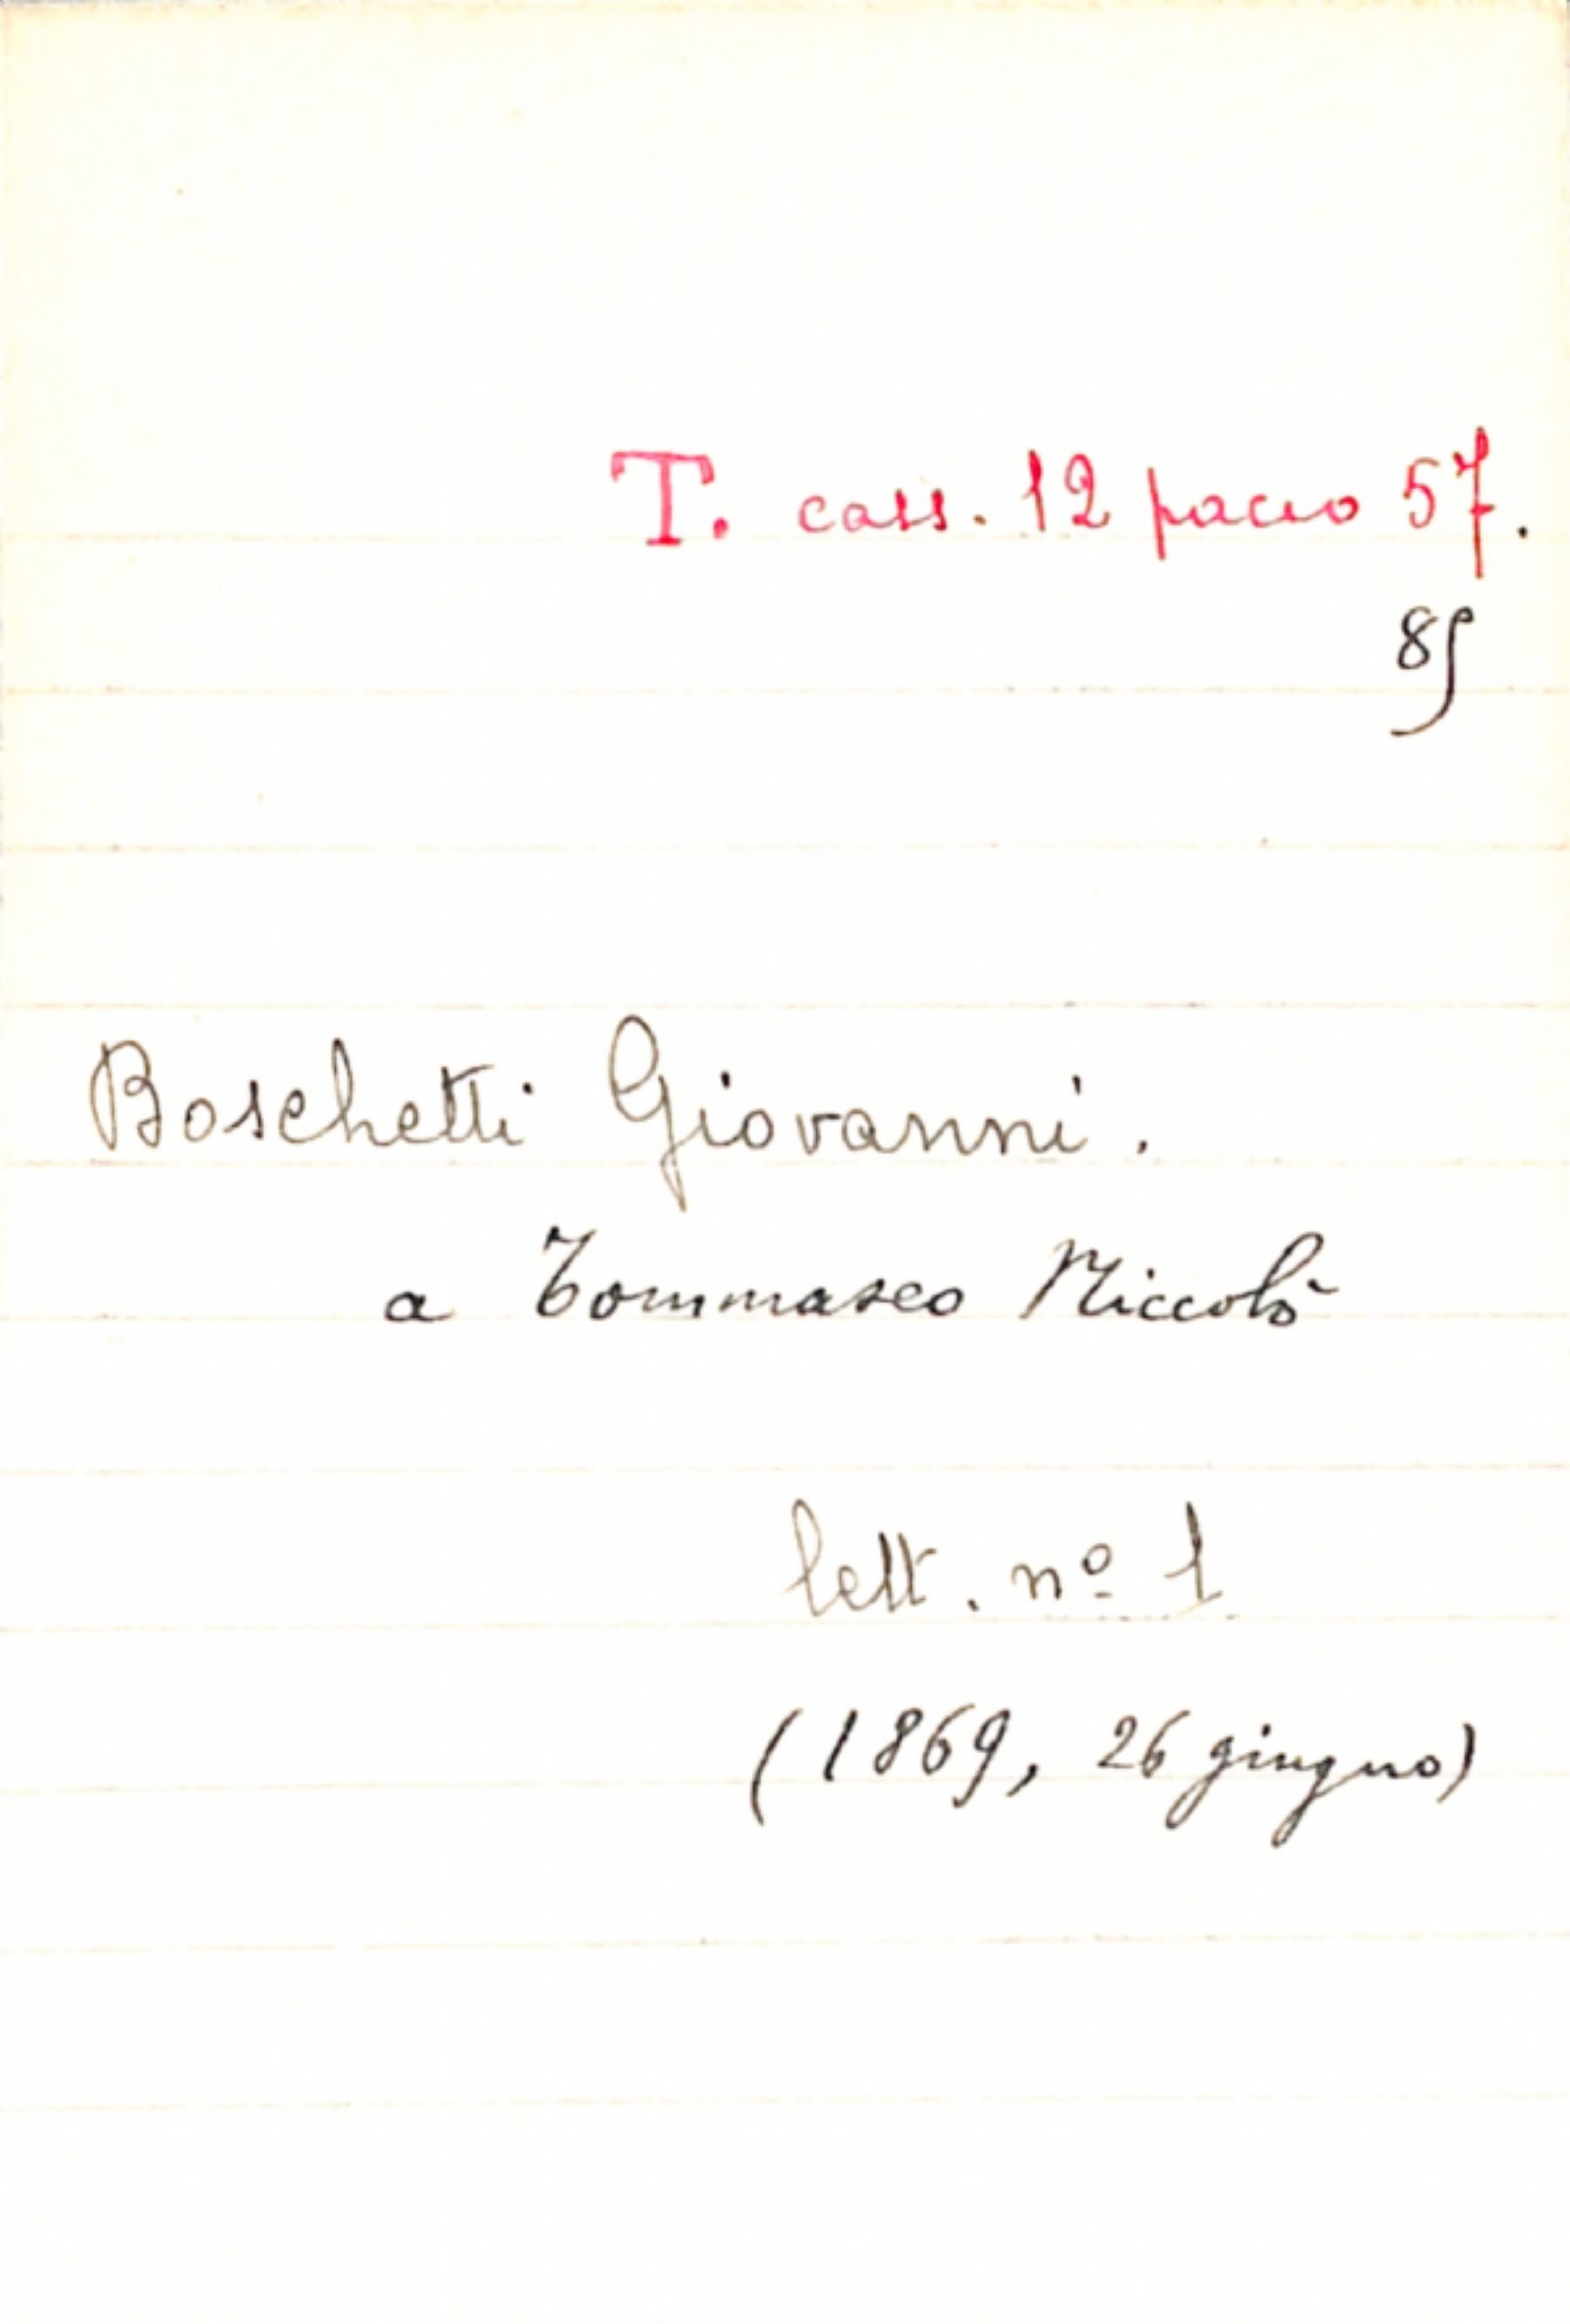 T. cass. 12 pacco 57.
85
Boschetti Giovanni.
a Tommaseo Niccolò
lett. nº 1
(1869, 26 giugno)